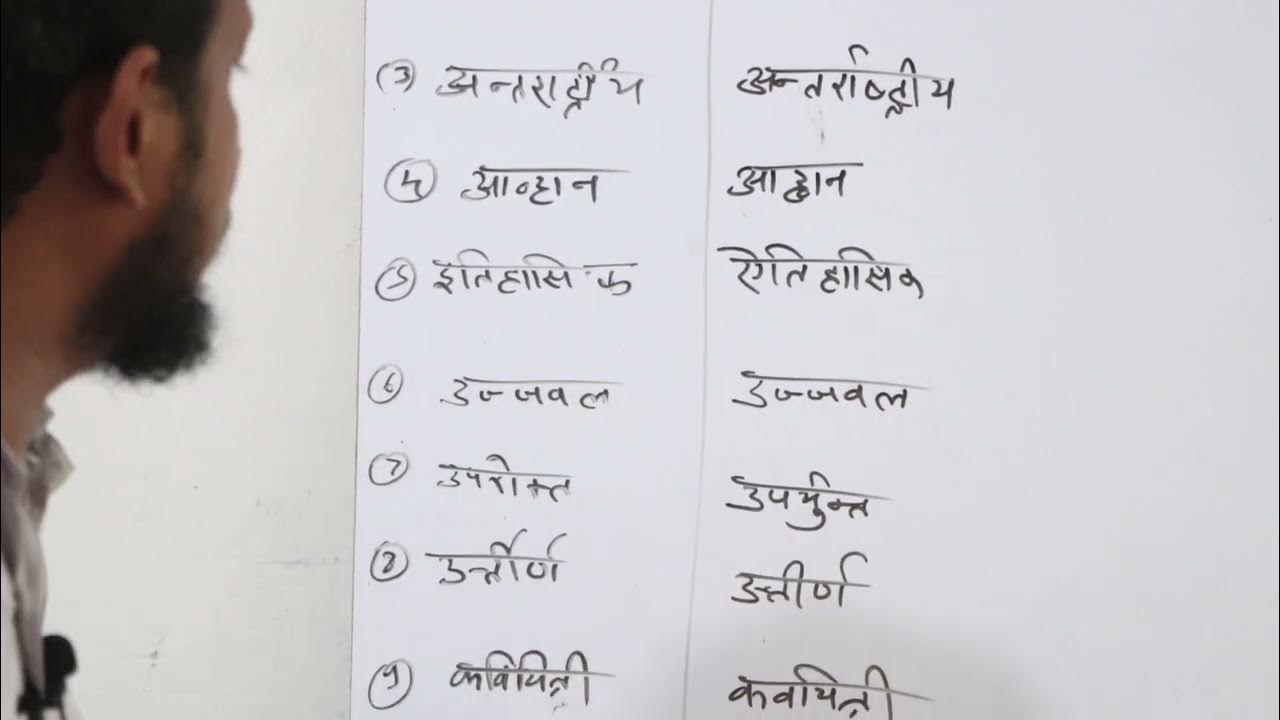 (3) अन्तराट्रीय अन्तर्राष्ट्रीय
(4) आव्हान आह्वान
(5) इतिहासिक ऐतिहासिक
(6) उज्जवल उज्जवल
(7) उपरोक्त उपर्युक्त
(8) उर्त्तीर्ण उत्तीर्ण
(9) कवियित्री कवयित्री